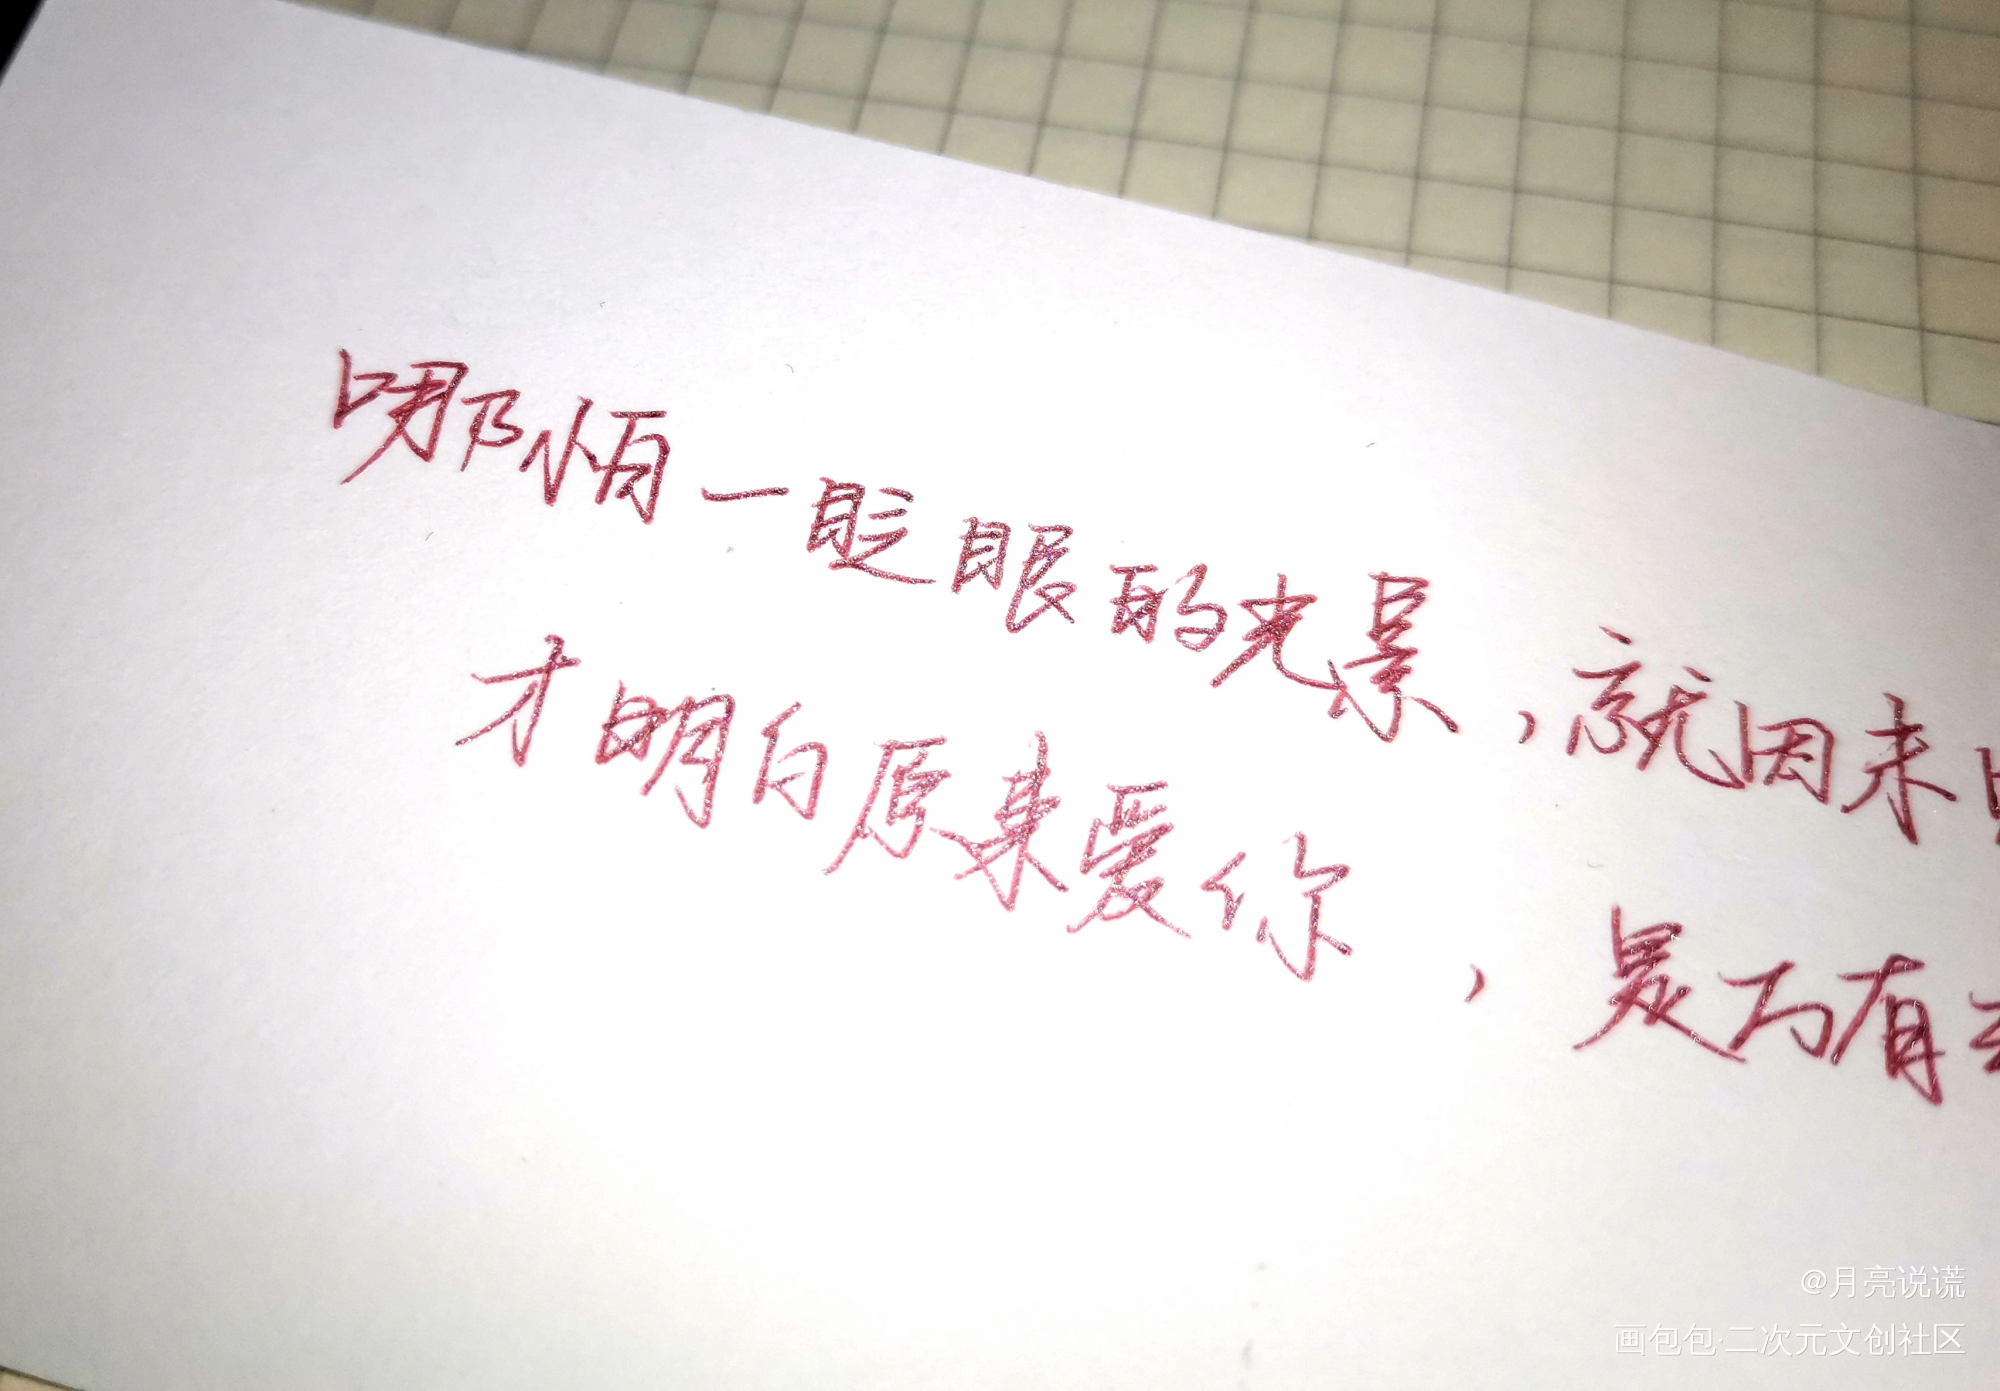 哪怕一眨眼的光景，就因未
才明白原来爱你，是万有
@月亮说谎
画包包·二次元文创社区